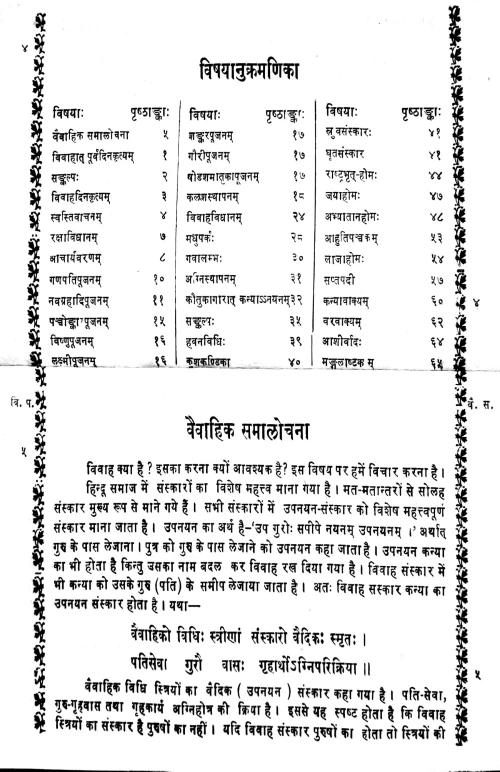 ४
विषयानुक्रमणिका
विषयाः पृष्ठाङ्काः
वैवाहिक समालोचना ५
विवाहात् पूर्वदिनकृत्यम् १
सङ्कल्पः २
विवाहदिनकृत्यम् ३
स्वस्तिवाचनम् ४
रक्षाविधानम् ७
आचार्यवरणम् ८
गणपतिपूजनम् १०
नवग्रहादिपूजनम् ११
पञ्चोङ्कारपूजनम् १५
विष्णुपूजनम् १६
लक्ष्मीपूजनम् १६
विषयाः पृष्ठाङ्काः
शङ्करपूजनम् १७
गौरीपूजनम् १७
षोडशमातृकापूजनम् १७
कलशस्थापनम् १८
विवाहविधानम् २४
मधुपर्कः २८
गवालम्भः ३०
अग्निस्थापनम् ३१
कौतुकागारात् कन्याऽऽनयनम् ३२
सङ्कल्पः ३५
हवनविधिः ३९
कुशकण्डिका ४०
विषयाः पृष्ठाङ्काः
स्रुवसंस्कारः ४१
घृतसंस्कार ४१
राष्ट्रभृत्-होमः ४४
जयाहोमः ४७
अभ्यातानहोमः ४८
आहुतिपञ्चकम् ५३
लाजाहोमः ५४
सप्तपदी ५७
कन्यावाक्यम् ६०
वरवाक्यम् ६२
आशीर्वादः ६४
मङ्गलाष्टकम् ६५
४
वि. प.
वै. स.
५
वैवाहिक समालोचना
विवाह क्या है ? इसका करना क्यों आवश्यक है? इस विषय पर हमें विचार करना है ।
हिन्दू समाज में संस्कारों का विशेष महत्त्व माना गया है । मत-मतान्तरों से सोलह
संस्कार मुख्य रूप से माने गये हैं । सभी संस्कारों में उपनयन-संस्कार को विशेष महत्त्वपूर्ण
संस्कार माना जाता है । उपनयन का अर्थ है–'उप गुरोः सपीपे नयनम् उपनयनम् ।' अर्थात्
गुरु के पास लेजाना । पुत्र को गुरु के पास लेजाने को उपनयन कहा जाता है । उपनयन कन्या
का भी होता है किन्तु उसका नाम बदल कर विवाह रख दिया गया है । विवाह संस्कार में
भी कन्या को उसके गुरु (पति) के समीप लेजाया जाता है । अतः विवाह सस्कार कन्या का
उपनयन संस्कार होता है । यथा—
वैवाहिको विधिः स्त्रीणां संस्कारो वैदिकः स्मृतः ।
पतिसेवा गुरौ वासः गृहार्थोऽग्निपरिक्रिया ॥
५
वैवाहिक विधि स्त्रियों का वैदिक ( उपनयन ) संस्कार कहा गया है । पति-सेवा,
गुरु-गृहवास तथा गृहकार्य अग्निहोत्र की क्रिया है । इससे यह स्पष्ट होता है कि विवाह
स्त्रियों का संस्कार है पुरुषों का नहीं । यदि विवाह संस्कार पुरुषों का होता तो स्त्रियों की